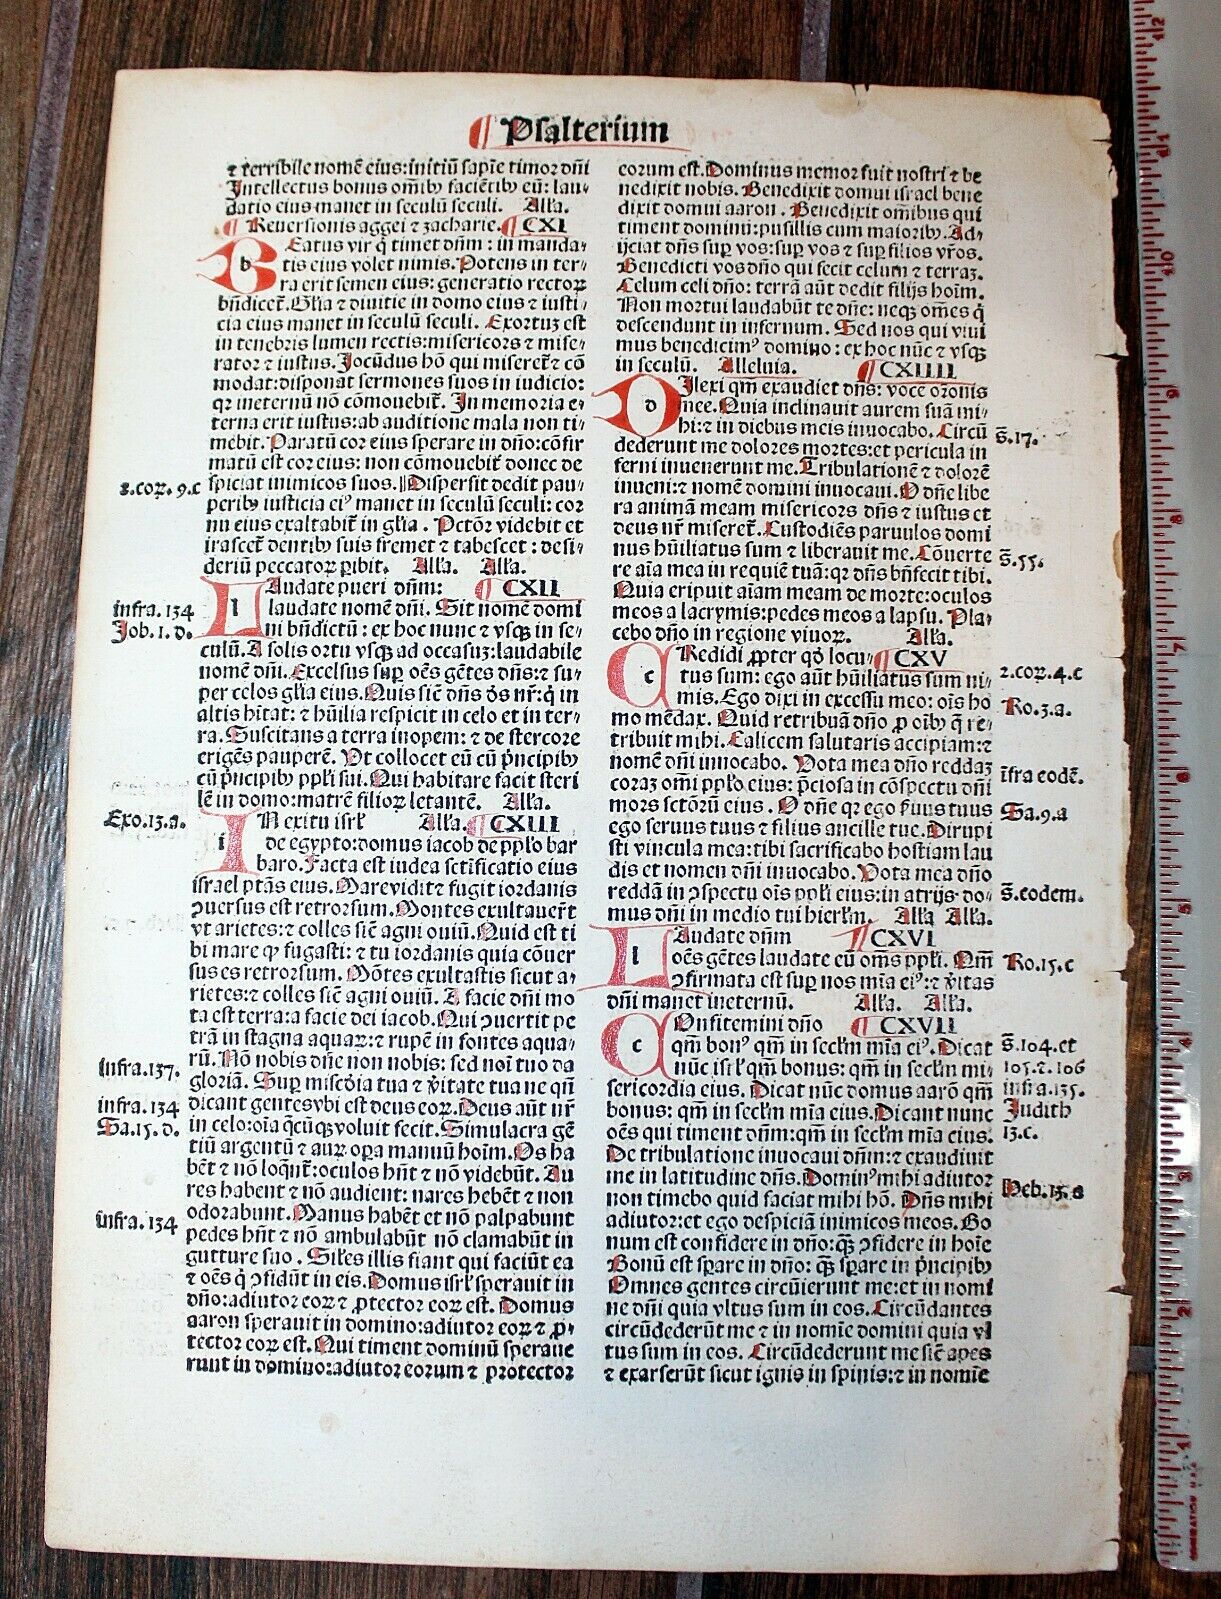 ¶ Psalterium
⁊ terribile nomē eius:initiū sapīe timor dn̄i
Intellectus bonus om̄ibꝰ faciētibꝰ eū: lau-
datio eius manet in seculū seculi. Alľa.
¶ Reuersionis aggei ⁊ zacharie. ¶ CXI
b Eatus vir q̄ timet dn̄m : in manda-
tis eius volet nimis. Potens in ter-
ra erit semen eius: generatio rectoꝝ
bn̄dicet̄. Gľia ⁊ diuitie in domo eius ⁊ iusti-
cia eius manet in seculū seculi. Exortuꝫ est
in tenebris lumen rectis:misericors ⁊ mise-
rator ⁊ iustus. Jocūdus hō qui miseret̄ ⁊ cō
modat:disponat sermones suos in iudicio:
qꝛ ineternū nō cōmouebit̄. In memoria e-
terna erit iustus:ab auditione mala non ti-
mebit. Paratū cor eius sperare in dn̄o:cōfir
matū est cor eius: non cōmouebit̄ donec de
spiciat inimicos suos. Dispersit dedit pau-
peribꝰ iusticia eiꝰ manet in seculū seculi: cor
nu eius exaltabit̄ in gľia . Pctōr videbit et
irascet̄ dentibꝰ suis fremet ⁊ tabescet : desi-
deriū peccatoꝝ ꝑibit. Alľa. Alľa.
l Audate pueri dn̄m: ¶ CXII
laudate nomē dn̄i. Sit nomē domi
ni bn̄dictū : ex hoc nunc ⁊ vsqꝫ in se-
culū. A solis ortu vsqꝫ ad occasuꝫ:laudabile
nomē dn̄i. Excelsus suꝑ oēs gētes dn̄s:⁊ su-
per celos gľia eius. Quis sic̄ dn̄s ds̄ nr̄:q̄ in
altis hītat: ⁊ hūilia respicit in celo et in ter-
ra. Suscitans a terra inopem: ⁊ de stercore
erigēs pauperē. Vt collocet eū cū pn̄cipibꝰ
cū pn̄cipibꝰ ppľi sui. Qui habitare facit steri
lē in domo:matrē filioꝝ letantē. Alľa.
i N exitu isrľ Alľa. ¶ CXIII
de egypto:domus iacob de ppľo bar
baro. Facta est iudea sctīficatio eius
israel ptās eius. Mare vidit ⁊ fugit iordanis
ꝯuersus est retrorsum. Montes exultauer̄t
vt arietes: ⁊ colles sic̄ agni ouiū. Quid est ti
bi mare qꝫ fugasti: ⁊ tu iordanis quia cōuer
sus es retrorsum. Mōtes exultastis sicut a-
rietes: ⁊ colles sic̄ agni ouiū. A facie dn̄i mo
ta est terra:a facie dei iacob. Qui ꝯuertit pe
trā in stagna aquaꝝ: ⁊ rupē in fontes aqua-
rū. Nō nobis dn̄e non nobis: sed noī tuo da
gloriā. Suꝑ miscďia tua ⁊ v̄itate tua ne qn̄
dicant gentes vbi est deus eoꝝ. Deus aūt nr̄
in celo:oīa qc̄ūqꝫ voluit fecit. Simulacra gē
tiū argentū ⁊ auꝝ oꝑa manuū hoīm. Os ha
bēt ⁊ nō loqn̄t̄:oculos hn̄t ⁊ nō videbūt. Au
res habent ⁊ nō audient: nares hēbēt ⁊ non
odorabunt. Manus habēt et nō palpabunt
pedes hn̄t ⁊ nō ambulabūt nō clamabūt in
gutture suo . Siľes illis fiant qui faciūt ea
⁊ oēs q̄ ꝯfidūt in eis. Domus isrľ sperauit in
dn̄o:adiutor eoꝝ ⁊ ꝓtector eoꝝ est. Domus
aaron sperauit in domino:adiutor eoꝝ ⁊ ꝓ-
tector eoꝝ est. Qui timent dominū speraue
runt in domino:adiutor eorum ⁊ protector
8.coꝝ. 9.c
infra. 134
Job. 1. d.
Exo.13.a.
infra.137.
infra. 134
Sa.15. d.
infra. 134
eorum est. Dominus memor fuit nostri ⁊ be
nedixit nobis. Benedixit domui israel bene
dixit domui aaron . Benedixit om̄ibus qui
timent dominū:pusillis cum maioribꝰ. Ad-
ijciat dn̄s suꝑ vos:suꝑ vos ⁊ suꝑ filios vr̄os.
Benedicti vos dn̄o qui fecit celum ⁊ terraꝫ.
Celum celi dn̄o: terrā aūt dedit filijs hoīm.
Non mortui laudabūt te dn̄e: neqꝫ om̄es q̄
descendunt in infernum. Sed nos qui viui
mus benedicimꝰ domino : ex hoc nūc ⁊ vsqꝫ
in seculū. Alleluia. ¶ CXIIII
d Ilexi qm̄ exaudiet dn̄s: voce orōnis
mee. Quia inclinauit aurem suā mi-
hi:⁊ in diebus meis inuocabo. Circū
dederunt me dolores mortes:et pericula in
ferni inuenerunt me. Tribulationē ⁊ dolorē
inueni:⁊ nomē domini inuocaui. O dn̄e libe
ra animā meam misericors dn̄s ⁊ iustus et
deus nr̄ miseret̄. Custodiēs paruulos domi
nus hūiliatus sum ⁊ liberauit me. Cōuerte
re aīa mea in requiē tuā:qꝛ dn̄s bn̄fecit tibi.
Quia eripuit aīam meam de morte:oculos
meos a lacrymis:pedes meos a lapsu. Pla-
cebo dn̄o in regione viuoꝝ. Alľa.
c Redidi ꝓpter qd̄ locu- ¶ CXV
tus sum: ego aūt hūiliatus sum ni-
mis. Ego dixi in excessu meo: oīs ho
mo mēdax. Quid retribuā dn̄o ꝓ oībꝰ q̄ re-
tribuit mihi. Calicem salutaris accipiam:⁊
nomē dn̄i inuocabo. Vota mea dn̄o reddaꝫ
coraꝫ omī ppľo eius: p̄ciosa in cōspectu dn̄i
mors sctōrū eius . O dn̄e qꝛ ego s̄uus tuus
ego seruus tuus ⁊ filius ancille tue. Dirupi
sti vincula mea:tibi sacrificabo hostiam lau
dis et nomen dn̄i inuocabo. Vota mea dn̄o
reddā in ꝯspectu oīs ppľi eius:in atrijs do-
mus dn̄i in medio tui hierľm. Alľa Alľa.
l Audate dn̄m ¶ CXVI
oēs gētes laudate eū om̄s ppľi. Qm̄
ꝯfirmata est suꝑ nos mīa eiꝰ:⁊ v̄itas
dn̄i manet ineternū. Alľa. Alľa.
c Onfitemini dn̄o ¶ CXVII
qm̄ bonꝰ qm̄ in secľm mīa eiꝰ. Dicat
nūc isrľ qm̄ bonus: qm̄ in secľm mi-
sericordia eius. Dicat nūc domus aarō qm̄
bonus: qm̄ in secľm mīa eius. Dicant nunc
oēs qui timent dn̄m:qm̄ in secľm mīa eius.
De tribulatione inuocaui dn̄m:⁊ exaudiuit
me in latitudine dn̄s. Dominꝰ mihi adiutor
non timebo quid faciat mihi hō. Dn̄s mihi
adiutor:et ego despiciā inimicos meos. Bo
num est confidere in dn̄o:qꝫ̄ ꝯfidere in hoīe
Bonū est sꝑare in dn̄o: qꝫ̄ sꝑare in pn̄cipibꝰ
Omnes gentes circūierunt me:et in nomi
ne dn̄i quia vltus sum in eos. Circūdantes
circūdederūt me ⁊ in nomīe domini quia vl
tus sum in eos. Circūdederunt me sic̄ apes
⁊ exarserūt sicut ignis in spinis:⁊ in nomīe
s̄. 17.
s̄.55.
2.coꝝ.4.c
Ro.3.a.
īfra eodē.
Sa.9.a
s̄.eodem.
Ro.15.c
s̄.104.et
105.⁊.106
infra.135.
Judith
13.c.
Heb.13.a